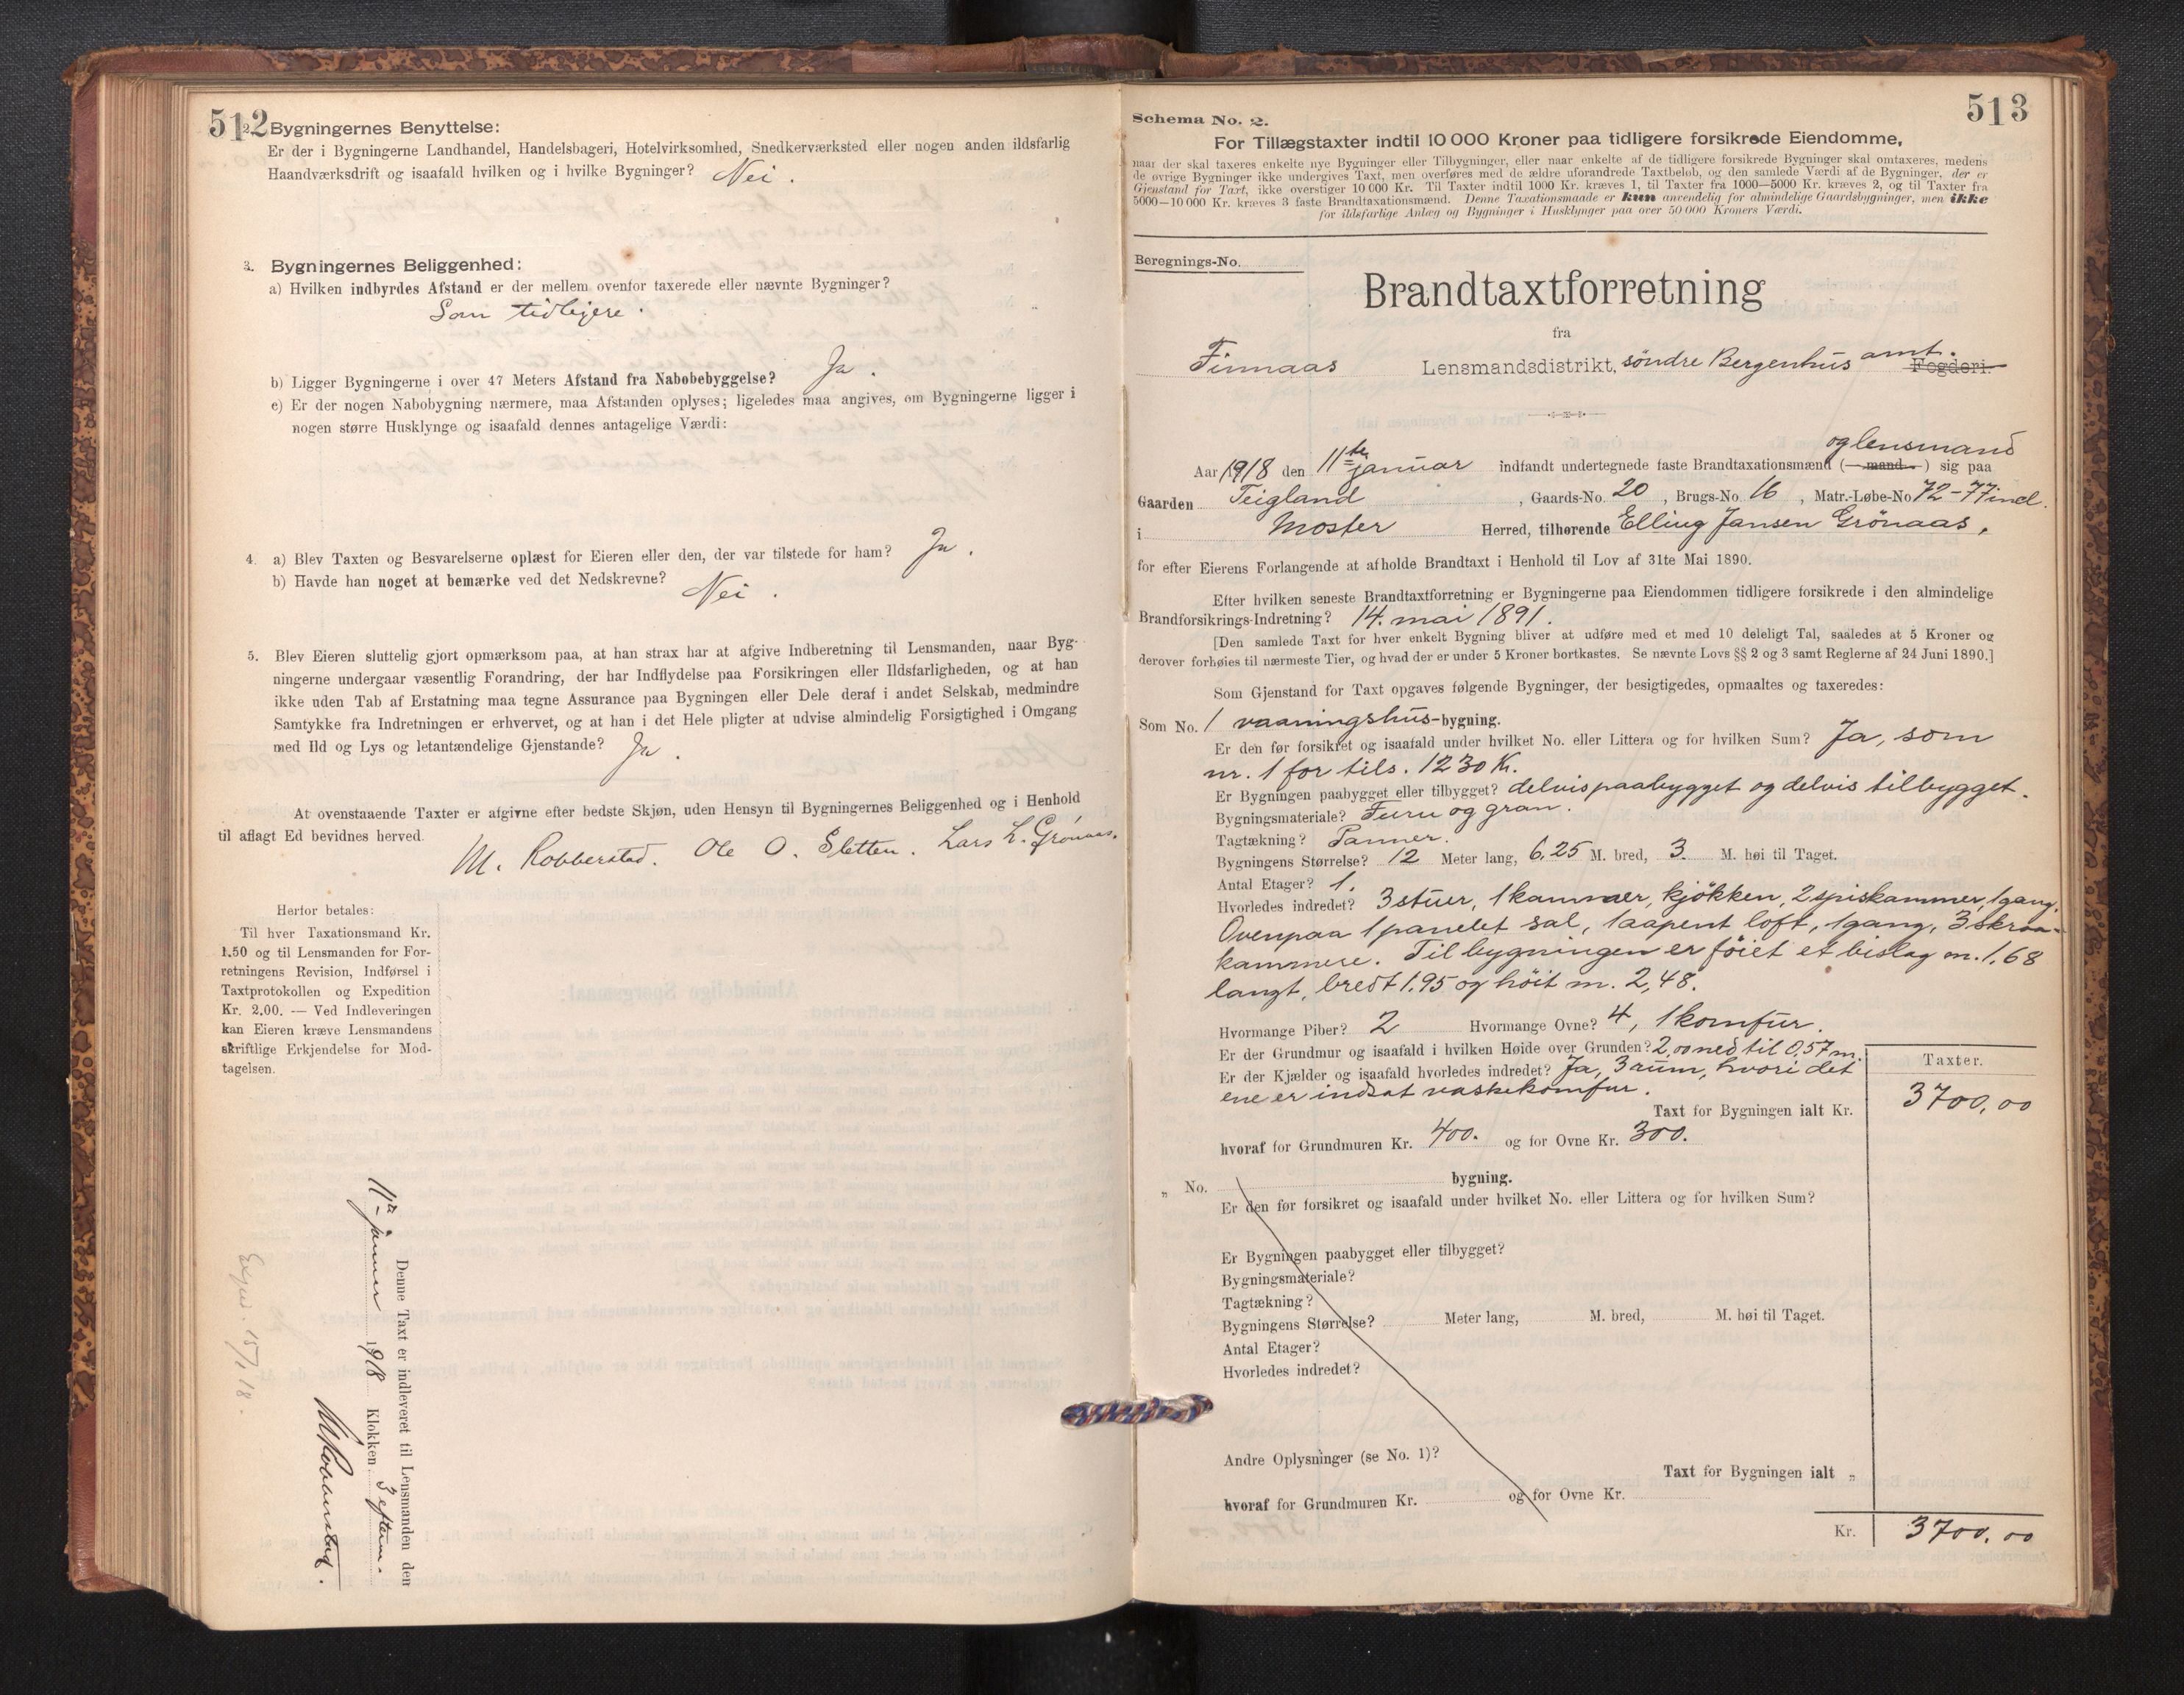 512
2. Bygningernes Benyttelse:
Er der i Bygningerne Landhandel, Handelsbageri, Hotelvirksomhed, Snedkerværksted eller nogen anden ildsfarlig
Haandværksdrift og isaafald hvilken og i hvilke Bygninger? Nei.
3. Bygningernes Beliggenhed:
a) Hvilken indbyrdes Afstand er der mellem ovenfor taxerede eller nævnte Bygninger?
Som tidligere.
b) Ligger Bygningerne i over 47 Meters Afstand fra Nabobebyggelse? Ja.
c) Er der nogen Nabobygning nærmere, maa Afstanden oplyses; ligeledes maa angives, om Bygningerne ligger i
nogen større Husklynge og isaafald dennes antagelige Værdi:
4. a) Blev Taxten og Besvarelserne oplæst for Eieren eller den, der var tilstede for ham? Ja.
b) Havde han noget at bemærke ved det Nedskrevne? Nei.
5. Blev Eieren sluttelig gjort opmærksom paa, at han strax har at afgive Indberetning til Lensmanden, naar Byg-
ningerne undergaar væsentlig Forandring, der har Indflydelse paa Forsikringen eller Ildsfarligheden, og at han
ikke uden Tab af Erstatning maa tegne Assurance paa Bygningen eller Dele deraf i andet Selskab, medmindre
Samtykke fra Indretningen er erhvervet, og at han i det Hele pligter at udvise almindelig Forsigtighed i Omgang
med Ild og Lys og letantændelige Gjenstande? Ja.
At ovenstaaende Taxter er afgivne efter bedste Skjøn, uden Hensyn til Bygningernes Beliggenhed og i Henhold
til aflagt Ed bevidnes herved.
M. Robberstad. Ole O. Sletten. Lars L. Grønaas.
Herfor betales:
Til hver Taxationsmand Kr.
1.50 og til Lensmanden for For-
retningens Revision, Indførsel i
Taxtprotokollen og Expedition
Kr. 2,00. — Ved Indleveringen
kan Eieren kræve Lensmandens
skriftlige Erkjendelse for Mod-
tagelsen.
Denne Taxt er indleveret til Lensmanden den
11te januar 1918 Klokken 3 efterm.
M Robberstad.
Exped. 15/1 18.
513
Schema No. 2.
For Tillægstaxter indtil 10 000 Kroner paa tidligere forsikrede Eiendomme,
naar der skal taxeres enkelte nye Bygninger eller Tilbygninger, eller naar enkelte af de tidligere forsikrede Bygninger skal omtaxeres, medens
de øvrige Bygninger ikke undergives Taxt, men overføres med de ældre uforandrede Taxtbeløb, og den samlede Værdi af de Bygninger, der er
Gjenstand for Taxt, ikke overstiger 10 000 Kr. Til Taxter indtil 1000 Kr. kræves 1, til Taxter fra 1000—5000 Kr. kræves 2, og til Taxter fra
5000—10 000 Kr. kræves 3 faste Brandtaxationsmænd. Denne Taxationsmaade er kun anvendelig for almindelige Gaardsbygninger, men ikke
for ildsfarlige Anlæg og Bygninger i Husklynger paa over 50 000 Kroners Værdi.
Beregnings-No.
Brandtaxtforretning
fra
Finnaas Lensmandsdistrikt, söndre Bergenhus amt. Fogderi.
og lensmand
Aar 1918 den 11te januar indfandt undertegnede faste Brandtaxationsmænd (mand) sig paa
Gaarden Teigland, Gaards-No. 20, Brugs-No. 16, Matr.-Løbe-No 72-77 incl.
i Moster Herred, tilhørende Elling Jansen Grönaas,
for efter Eierens Forlangende at afholde Brandtaxt i Henhold til Lov af 31te Mai 1890.
Efter hvilken seneste Brandtaxtforretning er Bygningerne paa Eiendommen tidligere forsikrede i den almindelige
Brandforsikrings-Indretning? 14. mai 1891.
[Den samlede Taxt for hver enkelt Bygning bliver at udføre med et med 10 deleligt Tal, saaledes at 5 Kroner og
derover forhøies til nærmeste Tier, og hvad der er under 5 Kroner bortkastes. Se nævnte Lovs §§ 2 og 3 samt Reglerne af 24 Juni 1890.]
Som Gjenstand for Taxt opgaves følgende Bygninger, der besigtigedes, opmaaltes og taxeredes:
Som No. 1 vaaningshus-bygning.
Er den før forsikret og isaafald under hvilket No. eller Littera og for hvilken Sum? Ja, som
nr. 1 for tils. 1230 K.
Er Bygningen paabygget eller tilbygget? delvis paabygget og delvis tilbygget.
Bygningsmateriale? Furu og gran.
Tagtækning? Panner.
Bygningens Størrelse? 12 Meter lang, 6,25 M. bred, 3. M. høi til Taget.
Antal Etager? 1.
Hvorledes indredet? 3 stuer, 1 kammer, kjökken, 2 spiskammer, 1 gang.
Ovenpaa 1 panelet sal, 1 aapent loft, 1 gang, 3 skraa-
kammere. Til bygningen er föiet et bislag m. 1,68
langt, bredt 1.95 og höit m. 2,48.
Hvormange Piber? 2 Hvormange Ovne? 4, 1 komfur.
Er der Grundmur og isaafald i hvilken Høide over Grunden? 2,00 ned til 0,57 m.
Er der Kjælder og isaafald hvorledes indredet? Ja, 3 rum, hvori det
ene er indsat vaskekomfur.
Taxter.
Taxt for Bygningen ialt Kr. 3700,00
hvoraf for Grundmuren Kr. 400. og for Ovne Kr. 300.
„ No. bygning.
Er den før forsikret og isaafald under hvilket No. eller Littera og for hvilken Sum?
Er Bygningen paabygget eller tilbygget?
Bygningsmateriale?
Tagtækning?
Bygningens Størrelse? Meter lang, M. bred, M. høi til Taget.
Antal Etager?
Hvorledes indredet?
Andre Oplysninger (se No. 1)?
Taxt for Bygningen ialt „
hvoraf for Grundmuren Kr. og for Ovne Kr.
Kr. 3700,00